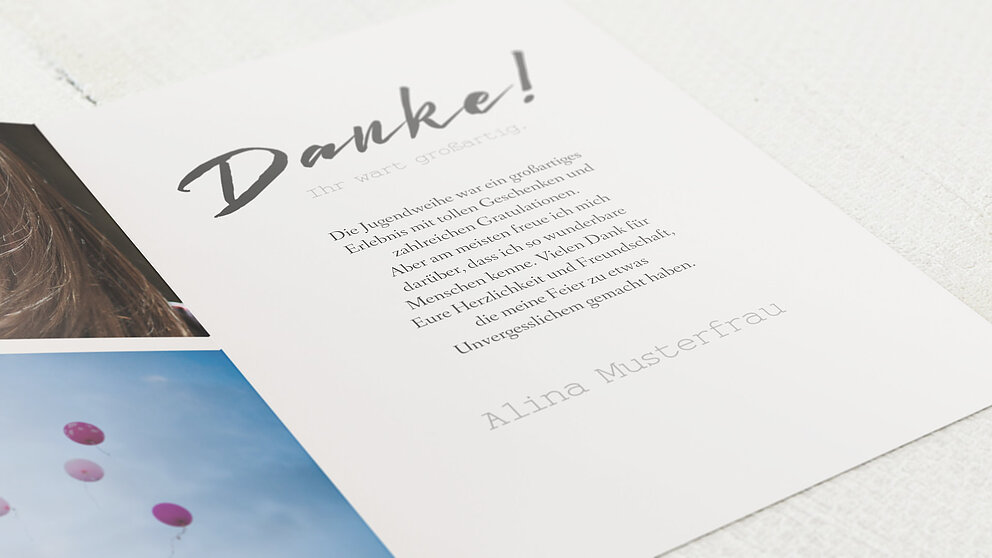 Danke!
Ihr wart großartig.
Die Jugendweihe war ein großartiges
Erlebnis mit tollen Geschenken und
zahlreichen Gratulationen.
Aber am meisten freue ich mich
darüber, dass ich so wunderbare
Menschen kenne. Vielen Dank für
Eure Herzlichkeit und Freundschaft,
die meine Feier zu etwas
Unvergesslichem gemacht haben.
Alina Musterfrau